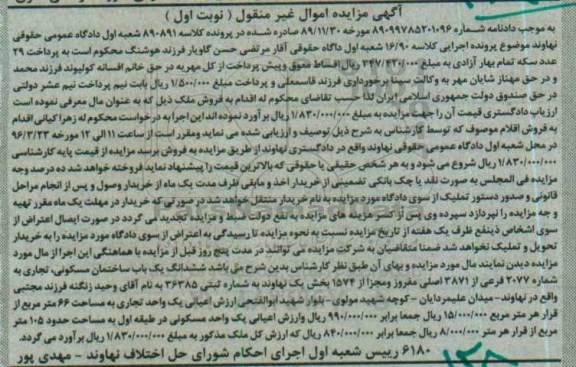 آگهی مزایده اموال غیر منقول ( نوبت اول )
به موجب دادنامه شماره ۸۹۰۹۹۷۷۸۵۲۰۱۰۹۶ مورخه ۸۹/۱۱/۳۰ صادره شده در پرونده کلاسه ۸۹۰۸۹۱ شعبه اول دادگاه عمومی حقوقی
نهاوند موضوع پرونده اجرایی کلاسه ۱۶/۹۰ شعبه اول داگاه حقوقی آقار مرتضی حسن گاویار فرزند هوشنگ محکوم است به پرداخت ۲۹
عدد سکه تمام بهار آزادی به مبلغ ۳۴۷/۴۲۰/۰۰۰ ریال اقساط معوق وپیش پرداخت از کل مهریه در حق خانم افسانه کولیوند فرزند محمد
و در حق مهناز شایان مهر به وکالت سینا برخورداری فرزند قاسمعلی و پرداخت مبلغ ۱/۵۰۰/۰۰۰ ریال بابت نیم پرداخت نیم عشر دولتی
در حق صندوق دولت جمهوری اسلامی ایران لذا حسب تقاضای محکوم له اقدام به فروش ملک ذیل که به عنوان مال معرفی نموده است
ارزیاب دادگستری قیمت آن را جهت مزایده به مبلغ ۱/۸۳۰/۰۰۰/۰۰۰ ریال برآورد نموده اند این اجرا به درخواست محکوم له زهرا کیانی اقدام
به فروش اقلام موصوف که توسط کارشناس به شرح ذیل توصیف و ارزیابی شده می نماید ومقرر است از ساعت ۱۱ الی ۱۲ مورخه ۹۶/۳/۲۳
در محل شعبه اول دادگاه عمومی حقوقی نهاوند واقع در دادگستری نهاوند از طریق مزایده به فروش برسد مزایده از قیمت پایه کارشناسی
۱/۸۳۰/۰۰۰/۰۰۰ ریال شروع می شود و به هر شخص حقیقی یا حقوقی که بالاترین قیمت را پیشنهاد نماید فروخته خواهد شد ده درصد وجه
مزایده فی المجلس به صورت نقد یا چک بانکی تضمینی از خریدار اخذ و مابقی ظرف مدت یک ماه از خریدار وصول و پس از انجام مراحل
قانونی و صدور دستور تملیک از سوی دادگاه مورد مزایده به نام خریدار منتقل خواهد شد در صورتی که خریدار در مهلت یک ماه مقرر بقیه
و جه مزایده را نپردازد سپرده وی پس از کسر هزینه های مزایده به نفع دولت ضبط و مزایده تجدید می گردد در صورت ایصال اعتراض از
سوی اشخاص ذینفع ظرف یک هفته از تاریخ مزایده نسبت به نحوه مزایده تا رسیدگی به اعتراض از سوی دادگاه مورد مزایده را به خریدار
تحویل و تملیک نخواهد شد ضمنا متقاضیان به شرکت مزایده می توانند در مدت پنج روز قبل از مزایده با هماهنگی این اجرا از مال مورد
مزایده دیدن نمایند مال مورد مزایده و بهای آن طبق نظر کارشناس بدین شرح می باشد ششدانگ یک باب ساختمان مسکونی، تجاری به
شماره ۲۰۷۷ فرعی از ۳۸۷۱ اصلی مفروز ومجزا از ۱۵۷۴ بخش یک نهاوند به شماره ثبتی ۳۶۳۸۵ به نام آقای وحید زنگنه فرزند مجتبی
واقع در نهاوند-میدان علیمردایان -کوچه شهید مولوی-بلوار شهید ابوالفتحی ارزش اعیانی یک واحد تجاری به مساحت ۶۶ متر مربع از
قرار هر متر مربع ۱۵/۰۰۰/۰۰۰ ریال جمعا برابر ۹۹۰/۰۰۰/۰۰۰ ریال وارزش اعیانی یک واحد مسکونی در طبقه اول به مساحت حدود ۱۰۵ متر
مربع از قرار هر متر ۸/۰۰۰/۰۰۰ ریال جمعا برابر ۸۴۰/۰۰۰/۰۰۰ ریال که ارزش کل ملک مذکور به مبلغ ۱/۸۳۰/۰۰۰/۰۰۰ ریال برآورد می گردد.
۶۱۸۰ رییس شعبه اول اجرای احکام شورای حل اختلاف نهاوند - مهدی پور